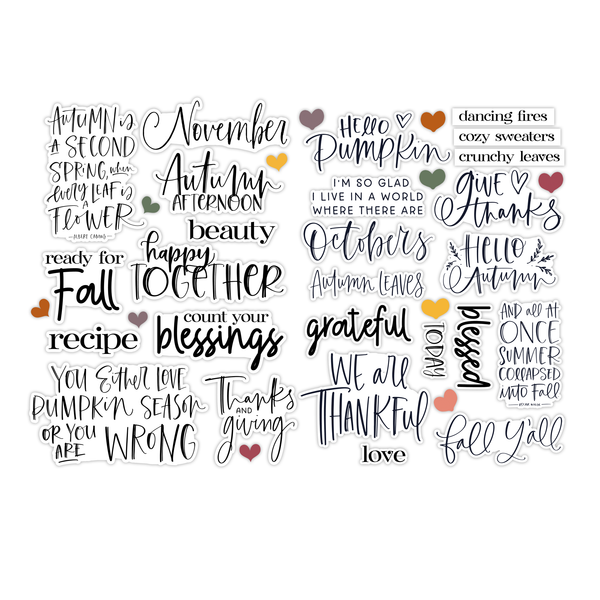 AUTUMN IS
A SECOND
SPRING, when
every LEAF is
A
FLOWER
—ALBERT CAMUS—
November
Autumn
AFTERNOON
beauty
ready for
Fall
happy
TOGETHER
recipe
count your
blessings
YOU Either LOVE
PUMPKIN SEASON
OR YOU
ARE WRONG
Thanks
AND
giving
HELLO
Pumpkin
I'M SO GLAD
I LIVE IN A WORLD
WHERE THERE ARE
Octobers
AUTUMN LEAVES
grateful
TODAY
blessed
WE ARE
THANKFUL
love
dancing fires
cozy sweaters
crunchy leaves
GIVE
thanks
HELLO
Autumn
AND all AT
ONCE
SUMMER
COLLAPSED
iNTO FAll
fall Y'all